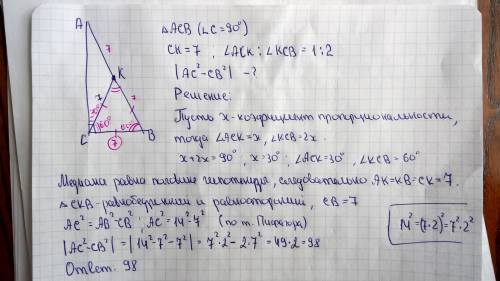 A
7
K
7
7
30°
60°
60°
C
7
B
△ACB (∠C=90°)
CK=7, ∠ACK:∠KCB=1:2
|AC²-CB²| -?
Решение:
Пусть x-коэфициент пропорциональности,
тогда ∠ACK=x, ∠KCB=2x.
x+2x=90°, x=30°, ∠ACK=30°, ∠KCB=60°
Медиана равна половине гипотенузы, следовательно AK=KB=CK=7.
△CKB-равнобедренный и равносторонний, CB=7
AC²=AB²-CB², AC²=14²-7² (по т. Пифагора)
|AC²-CB²|=|14²-7²-7²|=7²·2²-2·7²=49·2=98
14²=(7·2)²=7²·2²
Ответ: 98